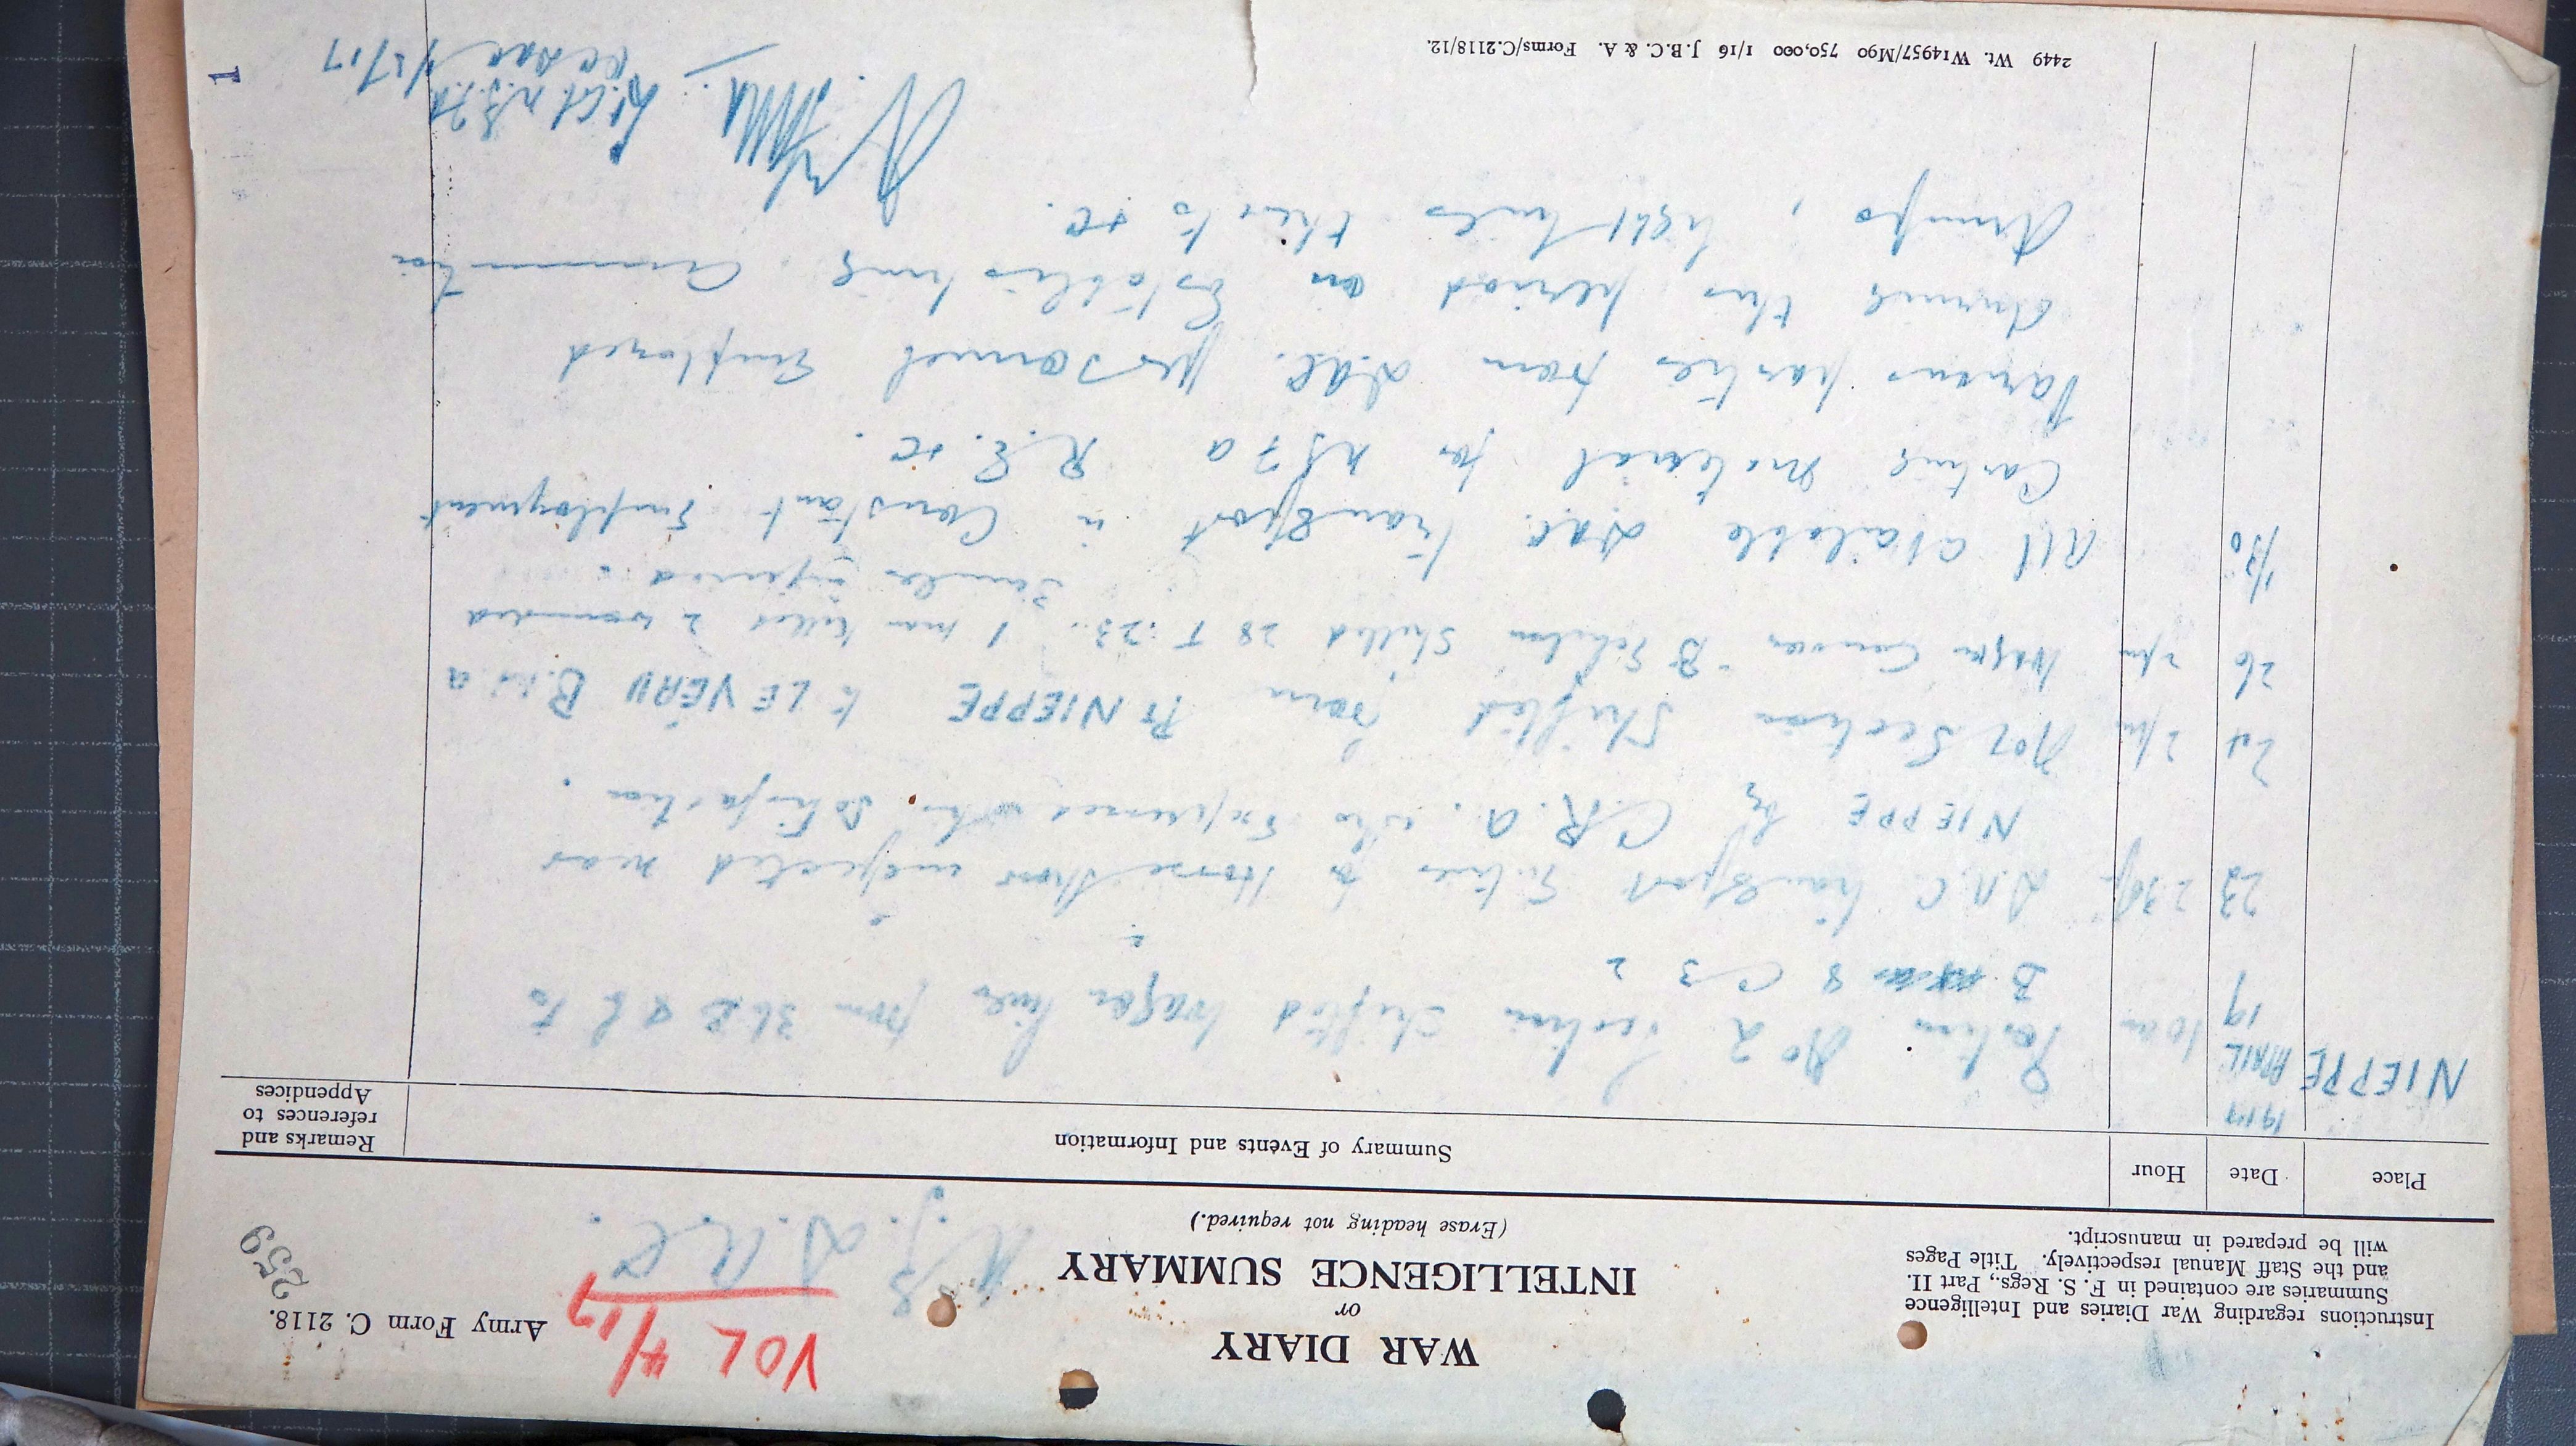 Army Form C. 2118.
2559
VOL 4/17
N.Z. D.A.C.
WAR DIARY
or
INTELLIGENCE SUMMARY
(Erase heading not required.)
Instructions regarding War Diaries and Intelligence
Summaries are contained in F. S. Regs., Part II.
and the Staff Manual respectively. Title Pages
will be prepared in manuscript.
Place Date Hour Summary of Events and Information Remarks and
references to
Appendices
1917
NIEPPE APRIL
19 10am Portion No 2 Section shifted wagon lines from 36 to
B 8 C 3 2
23 2.30pm D.A.C. transport Entries for Horse Show inspected near
NIEPPE by C.R.A. who expressed satisfaction.
2pm No 2 Section Shifted from Pt NIEPPE to LE VERU
26 2pm Wagon "B" Echelon Shelled 28 T.23. 1 man killed 2 wounded
3 mules injured.
1/30 All available D.A.C. transport in Constant Employment
Carting material for NZFA R.E. &c.
Various parties from D.A.C. personnel Employed
during this period on Establishing Ammunition
dumps, light lines to &c.
Lt Col. N.Z.F.A.
1/5/17
2449 Wt. W14957/M90 750,000 1/16 J.B.C. & A. Forms/C.2118/12.
1